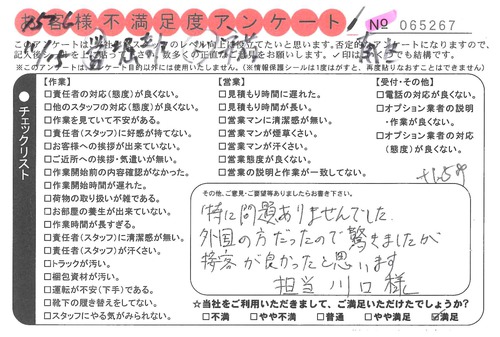 お客様不満足度アンケート
No 065267
このアンケートは
向上に役立てたいと思います。否定的なアンケートになりますので、
ご意見をお願いします。✓印は何ヶ所でも結構です。
※このアンケートはアンケート目的以外には使用いたしません。(※情報保護シールは1度はがすと、再度貼りなおすことはできません)
チェックリスト
【作業】
□責任者の対応(態度)が良くない。
□他のスタッフの対応(態度)が良くない。
□作業を見ていて不安がある。
□責任者(スタッフ)に好感が持てない。
□お客様への挨拶が出来ていない。
□ご近所への挨拶・気遣いが無い。
□作業開始前の内容確認がなかった。
□作業開始時間が遅れた。
□荷物の取り扱いが雑である。
□お部屋の養生が出来ていない。
□作業時間が長すぎる。
□責任者(スタッフ)に清潔感が無い。
□責任者(スタッフ)が汗くさい。
□トラックが汚い。
□梱包資材が汚い。
□運転が不安(下手)である。
□靴下の履き替えをしてない。
□スタッフにやる気がみられない。
【営業】
□見積もり時間に遅れた。
□見積もり時間が長い。
□営業マンに清潔感が無い。
□営業マンが煙草くさい。
□営業マンが汗くさい。
□営業態度が良くない。
□営業の説明と作業が一致してない。
【受付・その他】
□電話の対応が良くない。
□オプション業者の説明
・作業が良くない。
□オプション業者の対応
(態度)が良くない。
その他、ご意見・ご要望等ありましたらお書き下さい。
特に問題ありませんでした。
外国の方だったので驚きましたが
接客が良かったと思います
担当 川口様
☆当社をご利用いただきまして、ご満足いただけたでしょうか?
□不満 □やや不満 □普通 □やや満足 ☑満足